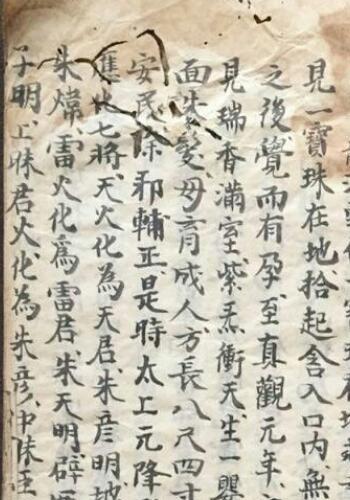 見一寶珠在地拾起含入口內無
之後覺而有孕至真觀元年
見瑞香滿室紫炁衝天生一
面朱髮母育成人方長八尺四寸
安民除邪輔正是時太上元降
化七將天火化為天君朱彦明
朱煒雷火化為雷君朱天明辟
子明上帥君火化為朱彦冲